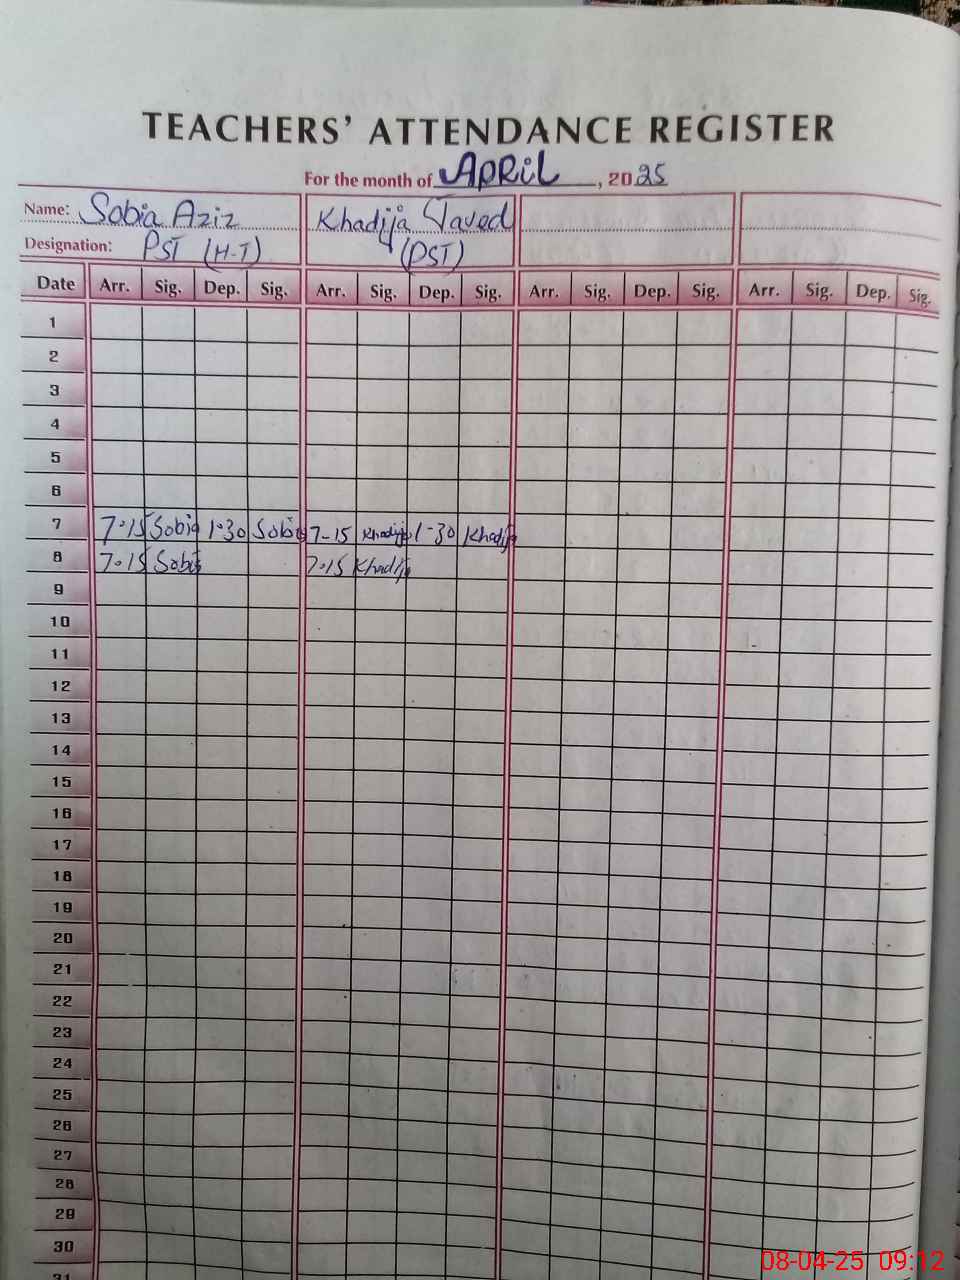 TEACHERS' ATTENDANCE REGISTER
For the month of APRIL, 2025
Name: Sobia Aziz Khadija Javed
Designation: PST (H-T) (PST)
Date Arr. Sig. Dep. Sig. Arr. Sig. Dep. Sig. Arr. Sig. Dep. Sig. Arr. Sig. Dep. Sig.
1
2
3
4
5
6
7 7.15 Sobia 1.30 Sobia 7-15 Khadija 1-30 Khadija
8 7.15 Sobia 7.15 Khadija
9
10
11
12
13
14
15
16
17
18
19
20
21
22
23
24
25
26
27
28
29
30
31
08-04-25 09:12